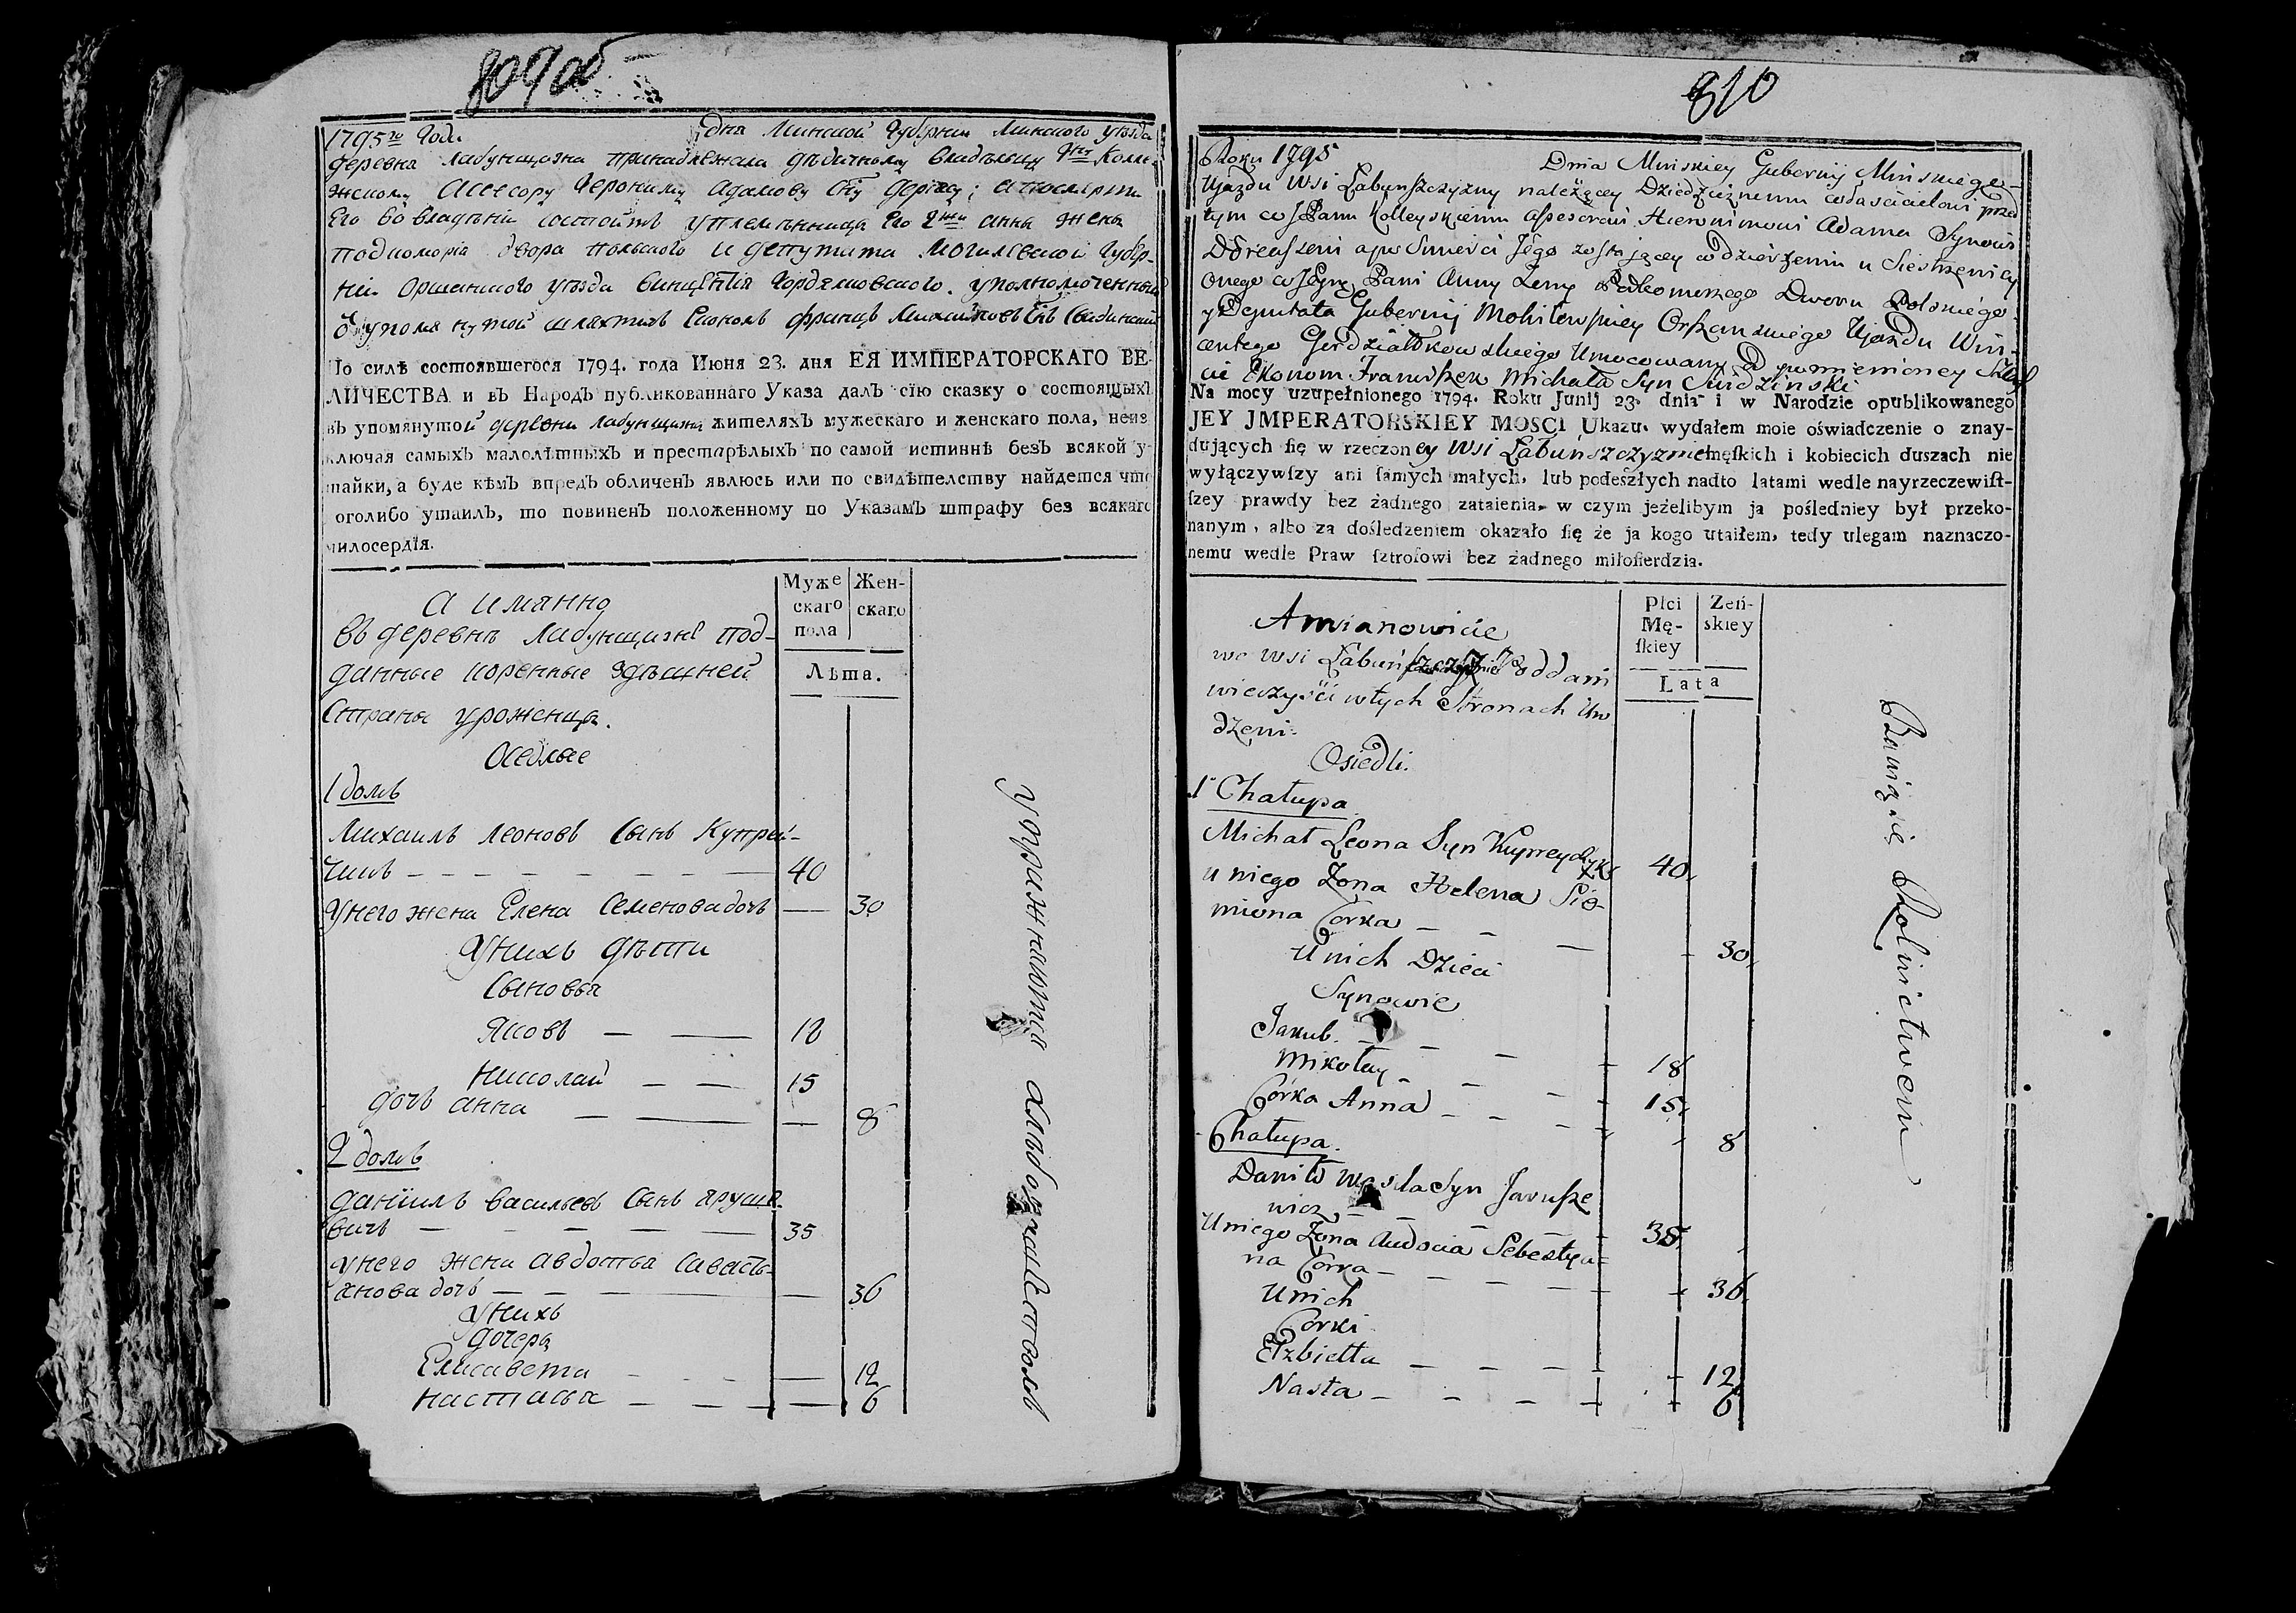 809 об
1795го Года дня Минской Губернии Минского уѣзда
деревня Лабунщизна принадлежала дѣдичному владѣльцу
Асесору Герониму Адамову
Его во владѣнии состоитъ у племѣнницы Его Анны жены
подкоморія двора польского и депутата Могилевской Губер-
нии Оршанского уѣзда Винцентія уполномоченный
упомянутой шляхтичь Економъ Францъ
По силѣ состоявшегося 1794. года Июня 23. дня ЕЯ ИМПЕРАТОРСКАГО ВЕ-
ЛИЧЕСТВА и въ Народъ публикованнаго Указа далъ сїю сказку о состоящыхъ
въ упомянутой деревни Лабунщизна жителяхъ мужескаго и женскаго пола, неиз
ключая самыхъ малолѣтныхъ и престарѣлыхъ по самой истиннѣ безъ всякой у-
тайки, а буде кѣмъ впредъ обличенъ явлюсь или по свидѣтелству найдется что
оголибо утаилъ, то повиненъ положенному по Указамъ штрафу без всякаго
милосердїя.
Муже Жен-
скаго скаго
пола
Лѣта.
А имянно
Въ деревнѣ Лабунщизнѣ под-
данные коренные здѣшней
Страны уроженцы.
Оседлые
1 домъ
Михаилъ Леоновъ Сынъ Купрей-
чикъ 40
У него жена Елена Семенова дочь 30
У нихъ дѣти
Сыновья
Яковъ 18
Николай 15
дочь Анна 8
2 домъ
Данїилъ Васильевъ Сынъ Яруше-
вичь 35
У него жена Авдотья Савасть-
янова дочь 36
У нихъ
дочеры
Елисавета 12
Настасья 6
Упражняются хлѣбопашеством
810
Roku 1795 Dnia Minskiey Gubernij Minskiego
Ujazdu Wsi Łabunszczyzny należącey Dziedzicznemu właścicielowi przed
tym Kolleyskiemu Assesorowi Hieronimowi Adama Synowi
a po Smierci Jego zostającey w dzierżeniu u Siestrzenicy
onego Pani Anny Żony Podkomorzego Dworu Polskiego
y Deputata Gubernij Mohilewskiey Orszanskiego Ujazdu Win-
centego Umocowany od pomienioney
Ekonom Franciszek Michała Syn
Na mocy uzupełnionego 1794. Roku Junij 23. dnia i w Narodzie opublikowanego
JEY JMPERATORSKIEY MOSCI Ukazu. wydałem moie oświadczenie o znay-
dujących ſię w rzeczoney Wsi Łabunszczyznie męſkich i kobiecich duszach nie
wyłączywſzy ani ſamych małych, lub podeszłych nadto latami wedle nayrzeczewiſt-
ſzey prawdy bez żadnego zataienia, w czym jeżelibym ja poſledniey był przeko-
nanym, albo za dośledzeniem okazało ſię że ja kogo utaiłem, tedy ulegam naznaczo-
nemu wedle Praw ſztrofowi bez żadnego miłoſierdzia.
Płci Zeń-
Mę- skiey
ſkiey
Lata
A mianowicie
we wsi Poddani
wieczyści w tych Stronach Uro
dzeni.
Osiedli.
1 Chałupa
Michał Leona Syn Kupreyczyk 40
u niego Żona Helena Sie-
miona Corka 30
U nich Dzieci
Synowie
Jakub 18
Mikołay 15
Córka Anna 8
Chałupa
Daniło Wasila Syn Jarusze
wicz 35
U niego Żona Audocia Sebestya-
na Corka 36
U nich
Corki
Elzbietta 12
Nasta 6
Bawią się Rolnictwem